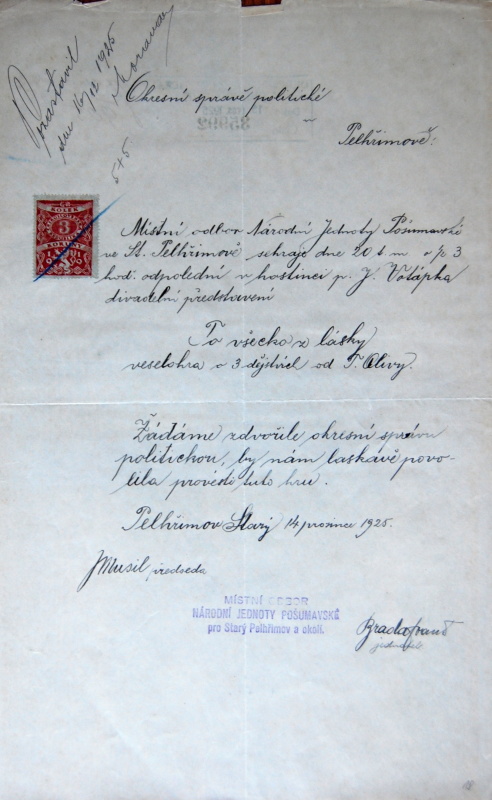 dne 16/12 1925
Okresní správě politické
35992
Pelhřimově.
5+5
KOLEK
3
KORUNY
Místní odbor Národní Jednoty Pošumavské
ve St. Pelhřimově sehraje dne 20 t. m. o ½ 3
hod. odpolední v hostinci p. J. Votápka
divadelní představení
To všecko z lásky
veselohra o 3 dějstvích od F. Olivy.
Žádáme zdvořile okresní správu
politickou, by nám laskavě povo-
lila provésti tuto hru.
Pelhřimov Starý 14 prosince 1925.
JMusil předseda
MÍSTNÍ ODBOR
NÁRODNÍ JEDNOTY POŠUMAVSKÉ
pro Starý Pelhřimov a okolí.
jednatel